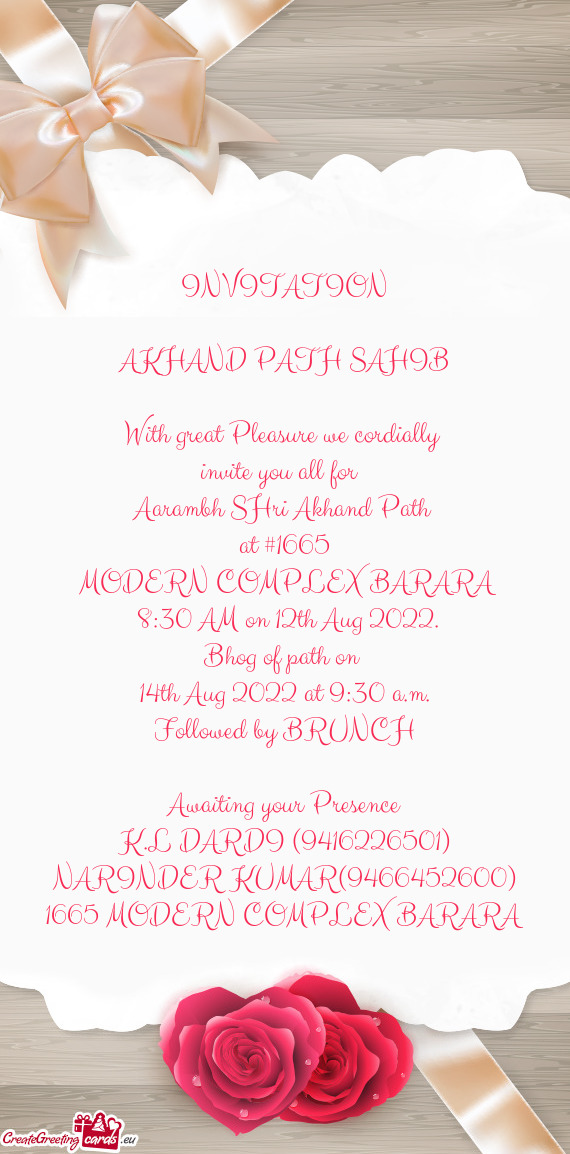 INVITATION
AKHAND PATH SAHIB
With great Pleasure we cordially
invite you all for
Aarambh SHri Akhand Path
at #1665
MODERN COMPLEX BARARA
8:30 AM on 12th Aug 2022.
Bhog of path on
14th Aug 2022 at 9:30 a.m.
Followed by BRUNCH
Awaiting your Presence
K.L DARDI (9416226501)
NARINDER KUMAR(9466452600)
1665 MODERN COMPLEX BARARA
CreateGreeting cards .eu